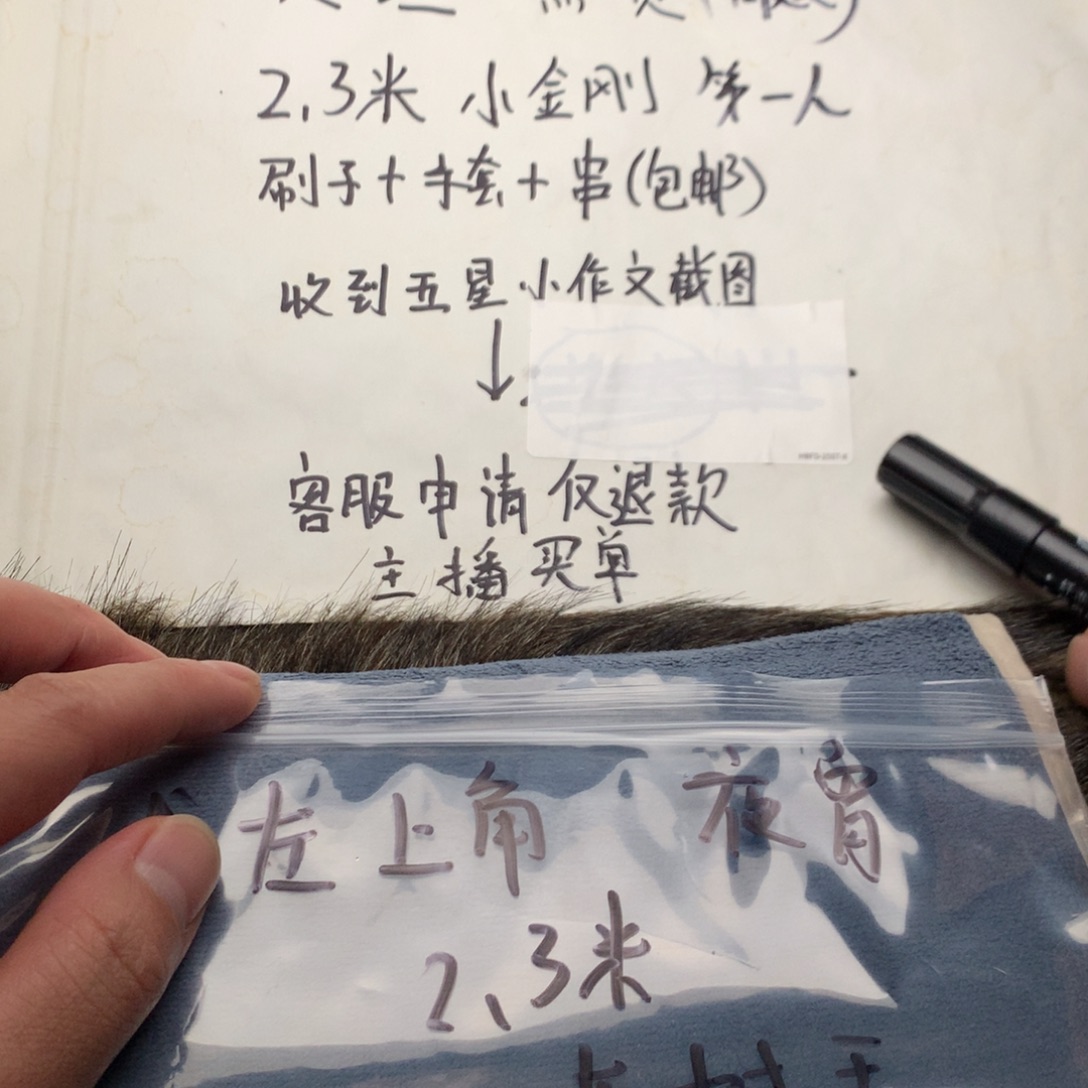 2.3米 小金刚 第一人
刷子+手套+串(包邮)
收到五星小作文截图
↓
客服申请仅退款
主播买单
左上角 夜胃
2.3米